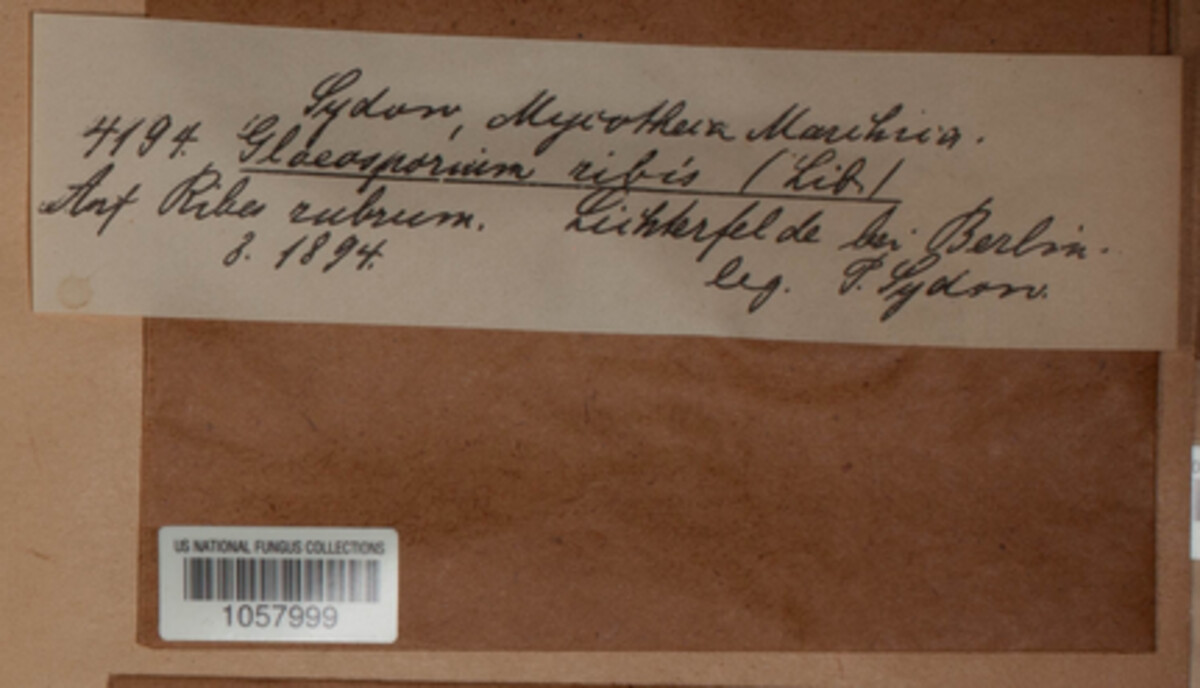 Sydow, Mycotheca Marchica.
4194. Gloeosporium ribis (Lib.)
Auf Ribes rubrum. Lichterfelde bei Berlin.
8. 1894. leg. P. Sydow.
US NATIONAL FUNGUS COLLECTIONS
1057999